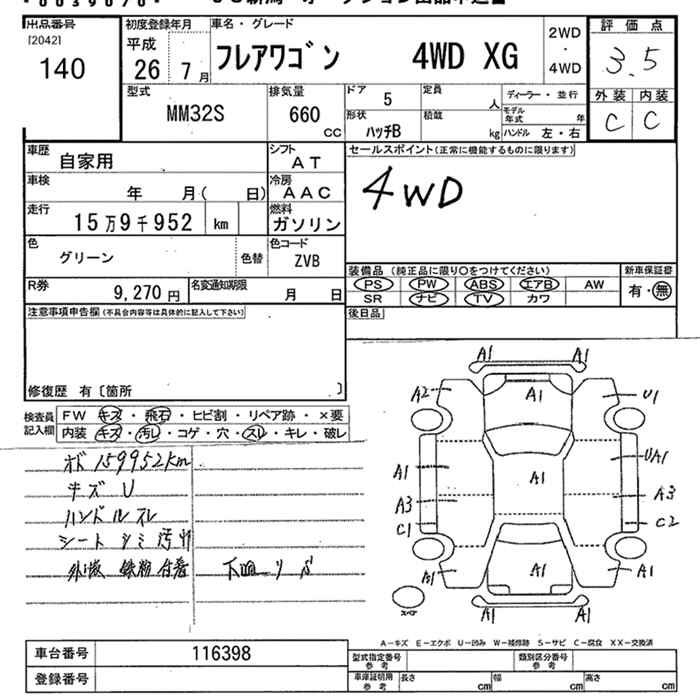 出品番号 初度登録年月 車名・グレード
[2042]
140 平成 26 7月 フレアワゴン 4WD XG 2WD・4WD
評価点 3.5
外装 内装
C C
型式 MM32S 排気量 660 cc
ドア 5 定員 人 ディーラー・並行
形状 ハッチB 積載 kg モデル年式 年
ハンドル 左・右
車歴 自家用 シフト AT
車検 年 月( 日) 冷房 AAC
走行 15万9千952 km 燃料 ガソリン
色 グリーン 色替 色コード ZVB
R券 9,270円 名変通知期限 月 日
セールスポイント(正常に機能するものに限ります)
4WD
装備品(純正品に限り○をつけてください) 新車保証書
PS PW ABS エアB AW 有・無
SR ナビ TV カワ
後日品
注意事項申告欄(不具合内容等は具体的に記入して下さい)
修復歴 有〔箇所 〕
検査員記入欄 FW キズ・飛石・ヒビ割・リペア跡・×要
内装 キズ・汚レ・コゲ・穴・スレ・キレ・破レ
オド 159952km
キズ U
ハンドルスレ
シート シミ 汚れ
外板 鉄粉付着 下廻り サビ
A1 A1
A2 A1 U1
A1 A1 UA1
A3 A3
C1 C2
A1 A1 A1
スペア A1 A1
A-キズ E-エクボ U-凹み W-補修跡 S-サビ C-腐食 XX-交換済
車台番号 116398
登録番号
型式指定番号 参考 類別区分番号 参考
車庫証明用 参考 長さ cm 幅 cm 高さ cm